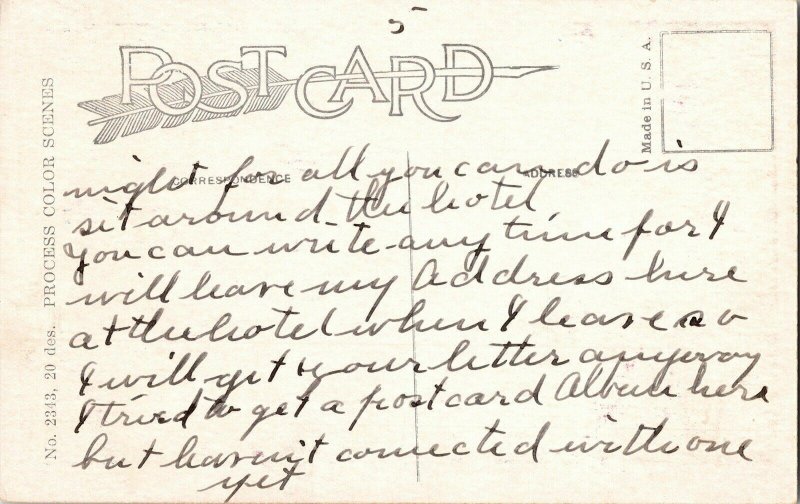 5
POST CARD
Made in U. S. A.
No. 2343, 20 des. PROCESS COLOR SCENES
CORRESPONDENCE
ADDRESS
night for all you can do is
sit around the hotel
you can write any time for I
will leave my Address here
at the hotel when I leave so
I will get your letter anyway
I tried to get a postcard Album here
but haven't conected with one
yet